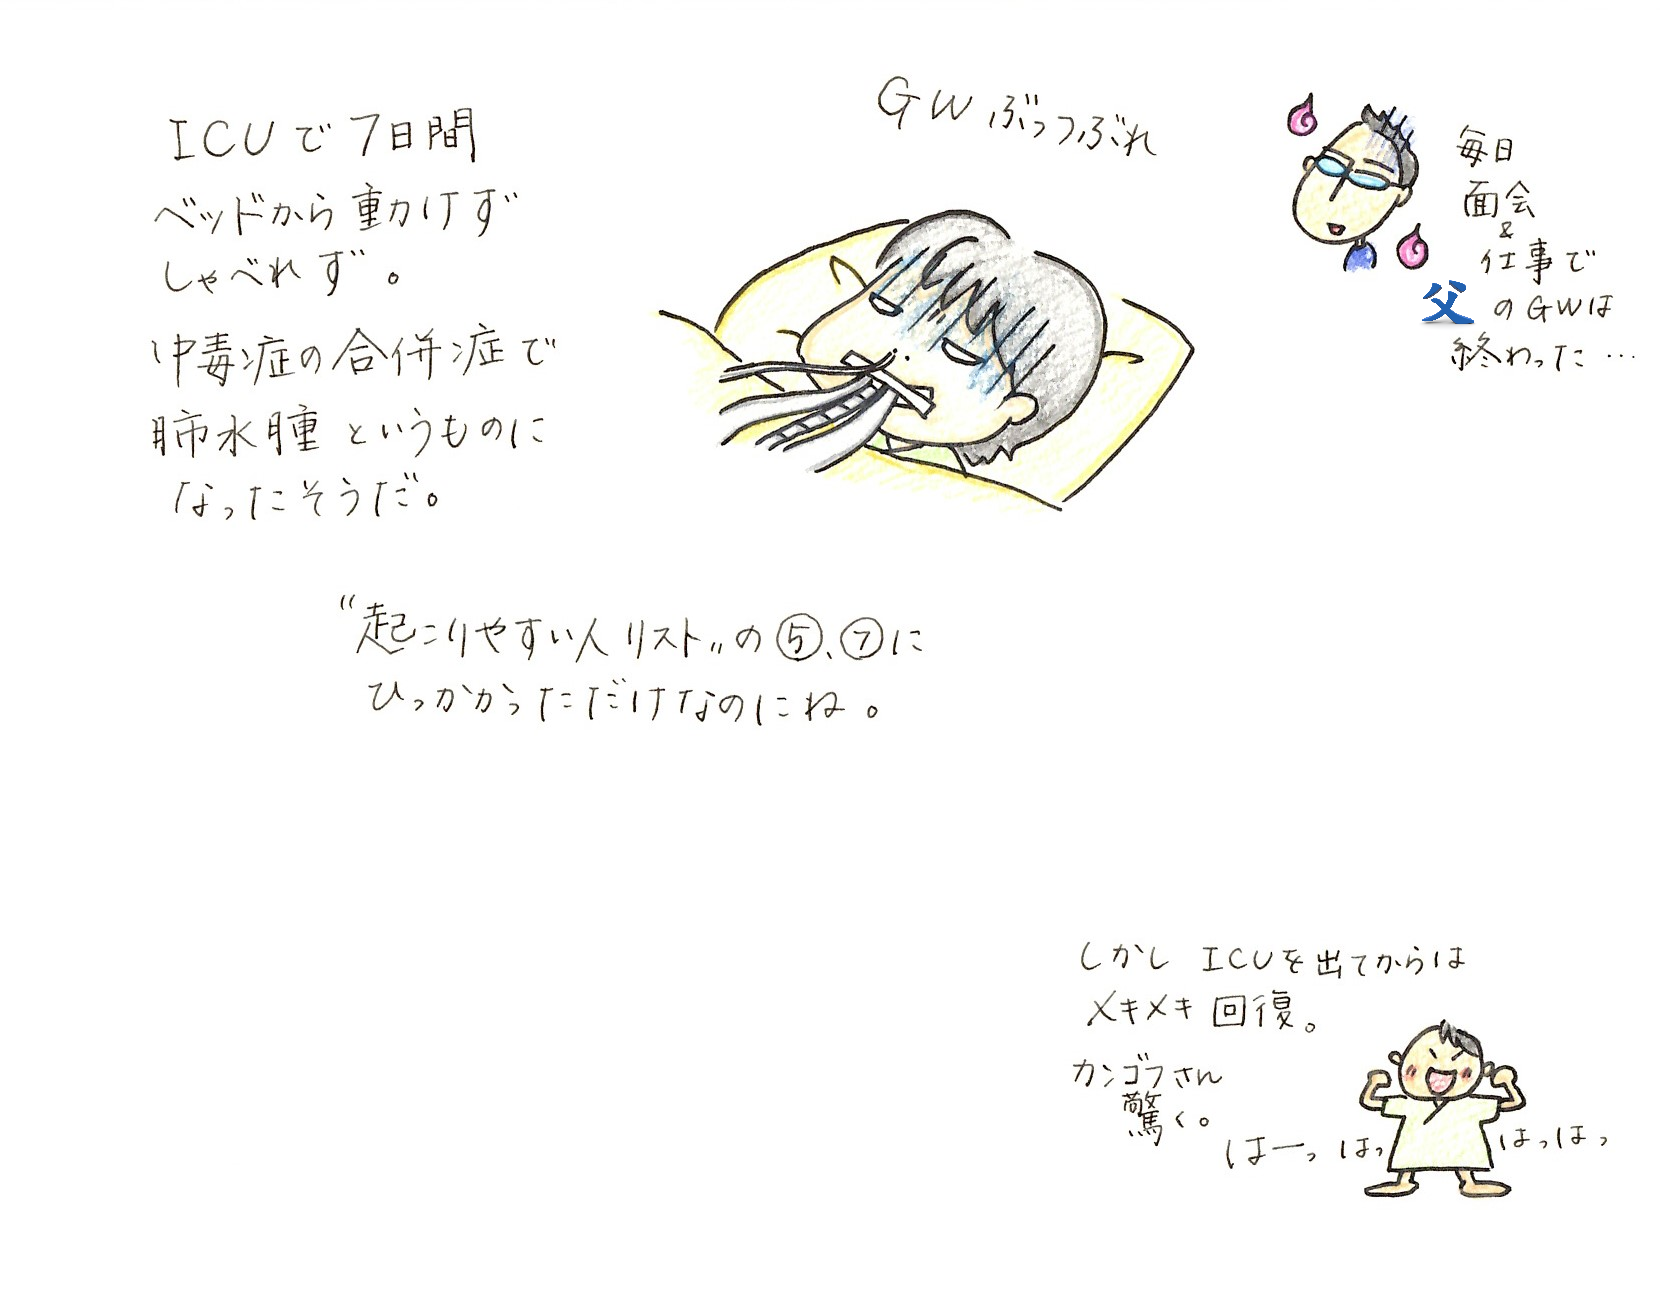 ICUで7日間
ベッドから動けず
しゃべれず。
中毒症の合併症で
肺水腫というものに
なったそうだ。
GWぶっつぶれ
毎日
面会
&
仕事で
父のGWは
終わった…
"起こりやすい人リスト"の⑤、⑦に
ひっかかっただけなのにね。
しかしICUを出てからは
メキメキ回復。
カンゴフさん
驚く。
はーっはっはっはっ